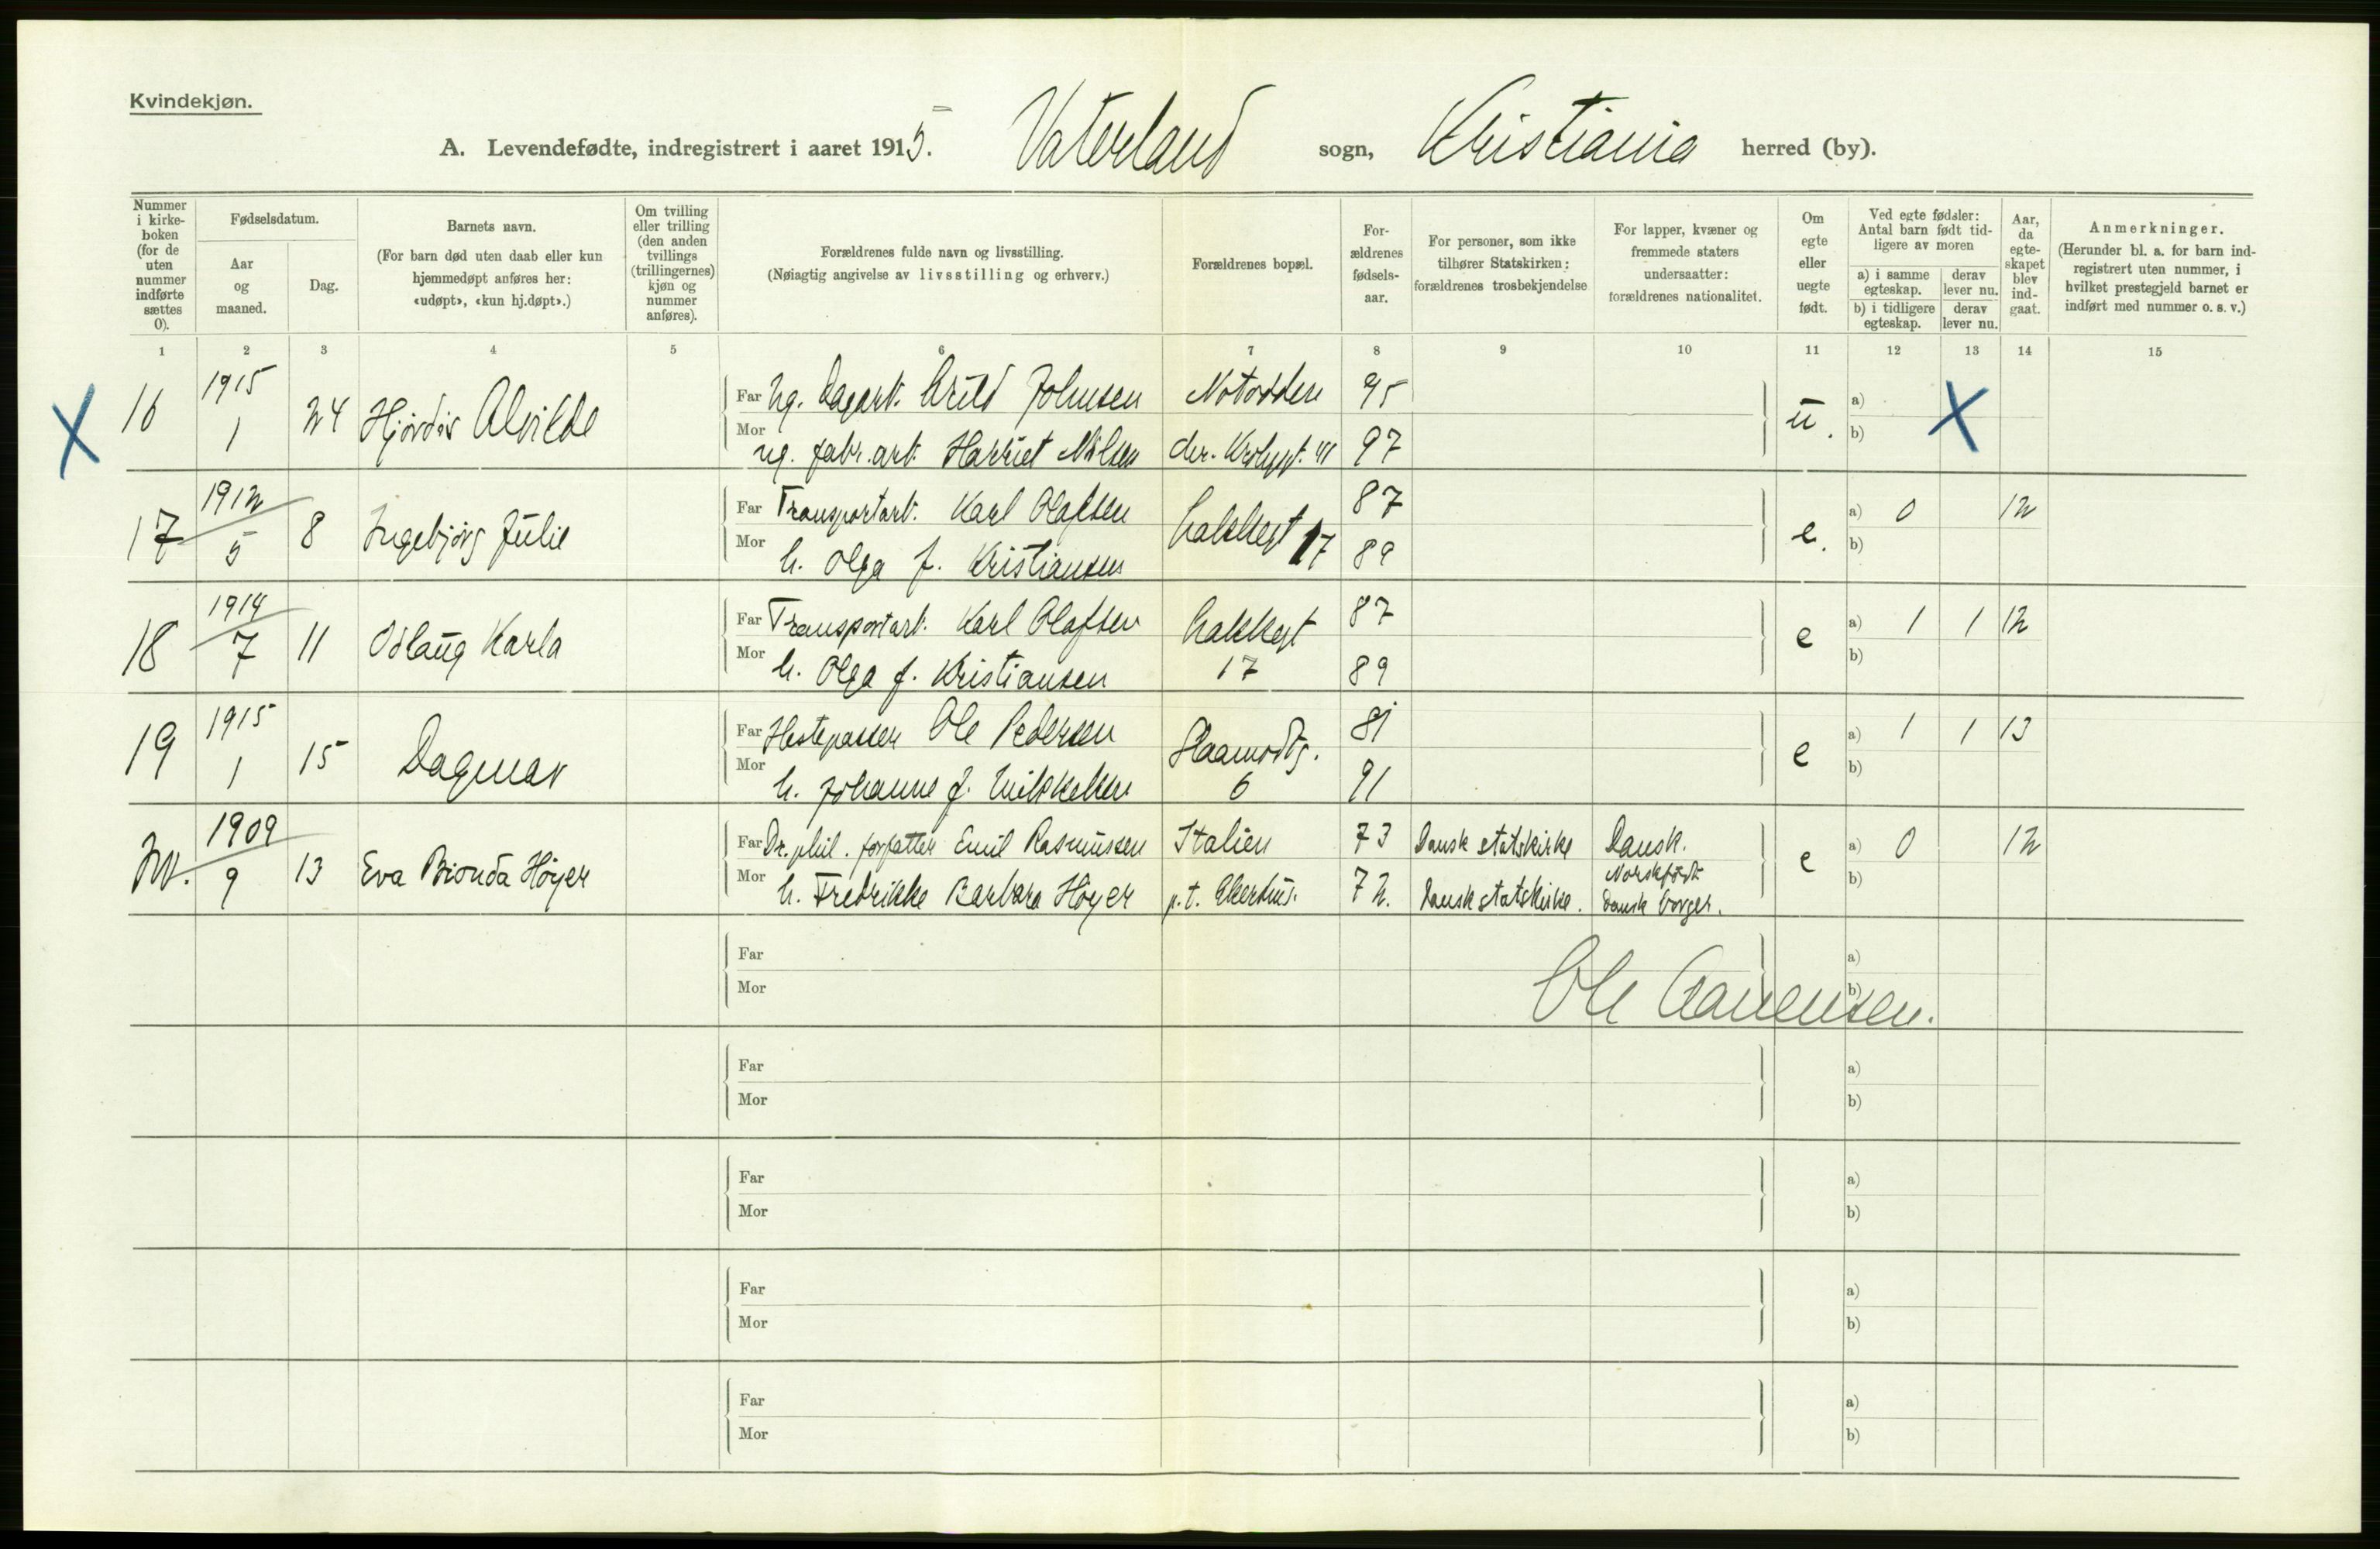 Kvindekjøn.
A. Levendefødte, indregistrert i aaret 1915. Vaterland sogn, Kristiania herred (by).
Nummer i kirke-boken (for de uten nummer indførte sættes 0).
Fødselsdatum.
Aar og maaned.
Dag.
Barnets navn.
(For barn død uten daab eller kun hjemmedøpt anføres her: «udøpt», «kun hj.døpt».)
Om tvilling eller trilling (den anden tvillings (trillingernes) kjøn og nummer anføres).
Forældrenes fulde navn og livsstilling.
(Nøiagtig angivelse av livsstilling og erhverv.)
Forældrenes bopæl.
For-ældrenes fødsels-aar.
For personer, som ikke tilhører Statskirken: forældrenes trosbekjendelse
For lapper, kvæner og fremmede staters undersaatter: forældrenes nationalitet.
Om egte eller uegte født.
Ved egte fødsler: Antal barn født tid-ligere av moren
a) i samme egteskap.
derav lever nu.
b) i tidligere egteskap.
derav lever nu.
Aar, da egte-skapet blev ind-gaat.
Anmerkninger.
(Herunder bl. a. for barn ind-registrert uten nummer, i hvilket prestegjeld barnet er indført med nummer o. s. v.)
1 2 3 4 5 6 7 8 9 10 11 12 13 14 15
X 16 1915 1 24 Hjørdis Alvilde
Far Ug. Johnsen Notodden 95
Mor ug. fabr.arb. Harriet Nilsen 97
u. a) b) X
17 1912 5 8 Ingebjørg Julie
Far Transportarb. Karl Olafsen Lakkegt 17 87
Mor h. Olga f. Kristiansen 89
e. a) 0 12 b)
18 1914 7 11 Oslaug Karla
Far Transportarb. Karl Olafsen Lakkegt 17 87
Mor h. Olga f. Kristiansen 89
e a) 1 1 12 b)
19 1915 1 15 Dagmar
Far Hestepasser Ole Pedersen 6 81
Mor h. Johanne f. Mikkelsen 91
e a) 1 1 13 b)
20. 1909 9 13 Eva Bionda Høyer
Far Dr. phil. forfatter Emil Rasmussen Italien 73 Dansk statskirke Dansk.
Mor h. Fredrikke Barbara Høyer p.t. Akershus. 72. Dansk statskirke. Norskfødt Dansk borger.
e a) 0 12 b)
Far
Mor
a)
b)
Ole
Far
Mor
a)
b)
Far
Mor
a)
b)
Far
Mor
a)
b)
Far
Mor
a)
b)